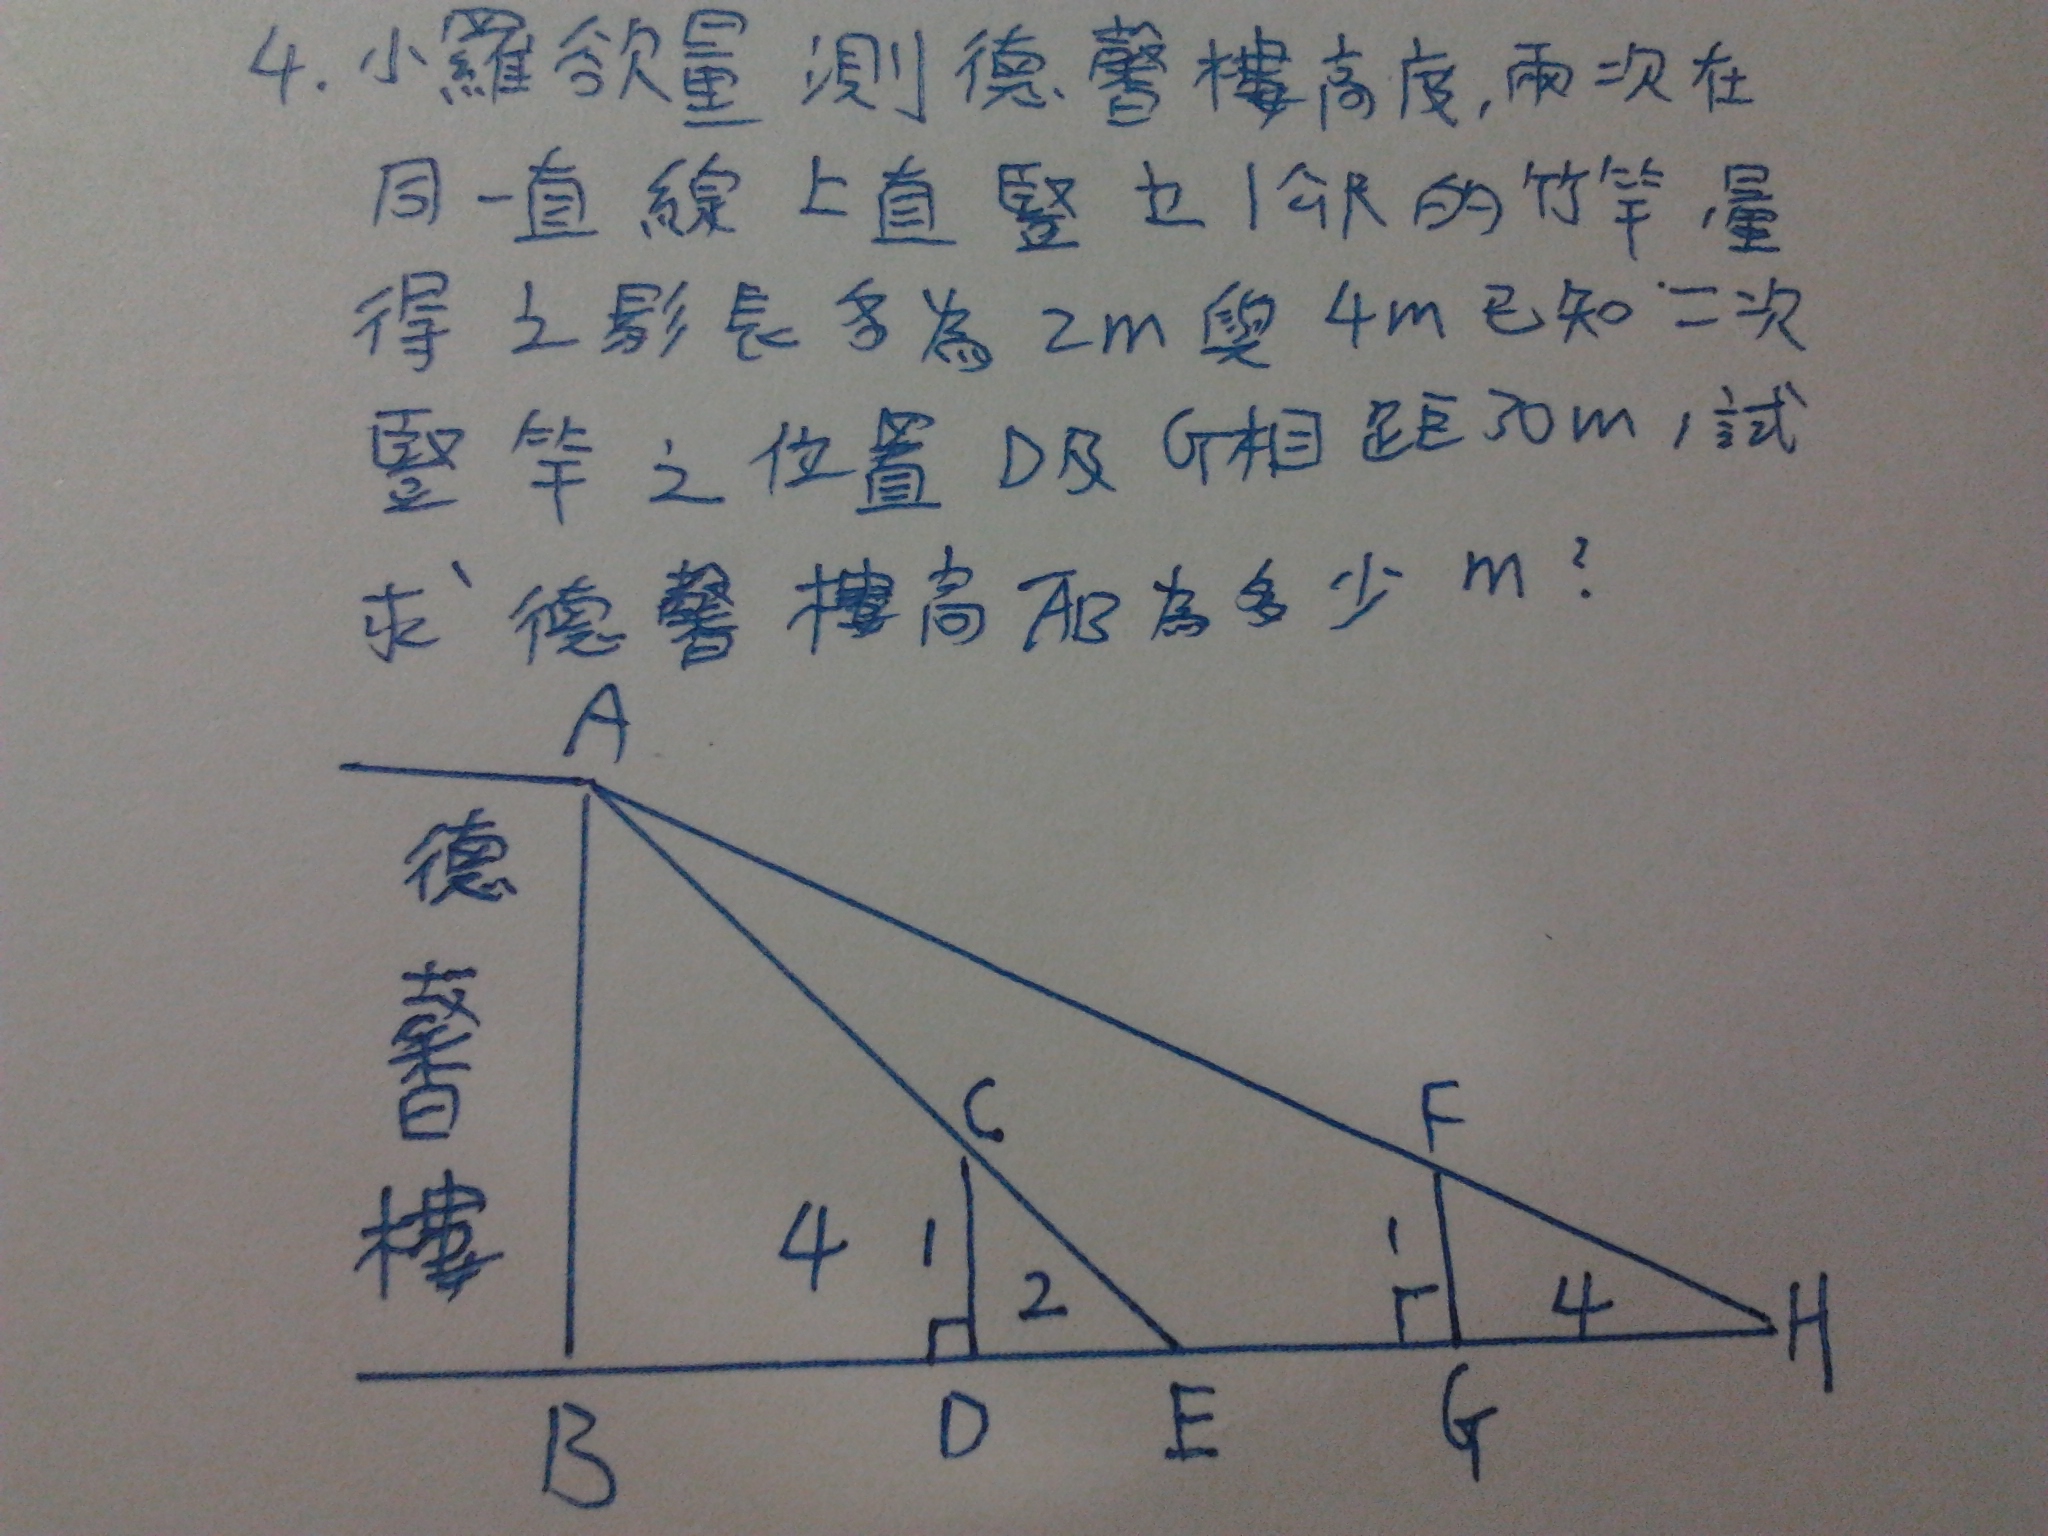 4. 小羅欲量測德馨樓高度,兩次在
同一直線上直豎立1公尺的竹竿,量
得之影長多為2m與4m已知二次
豎竿之位置D及G相距30m,試
求、德馨樓高AB為多少m?
A
德
馨
樓
C
F
4
1
2
1
4
H
B
D
E
G